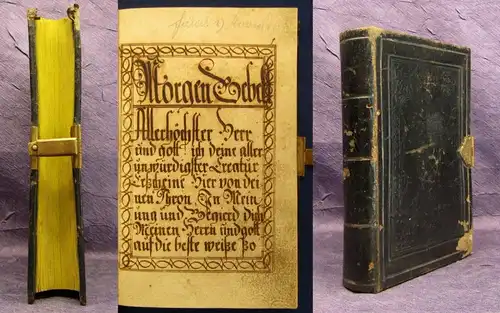 Morgen Gebett
Allerhöchster Herr
und gott ich deine aller
unwürdigster Creatur
Erscheine Hier von dei
nen Thron In Mein
ung und Begierd dich
Meinen Herrn und gott
auf die beste weiße so